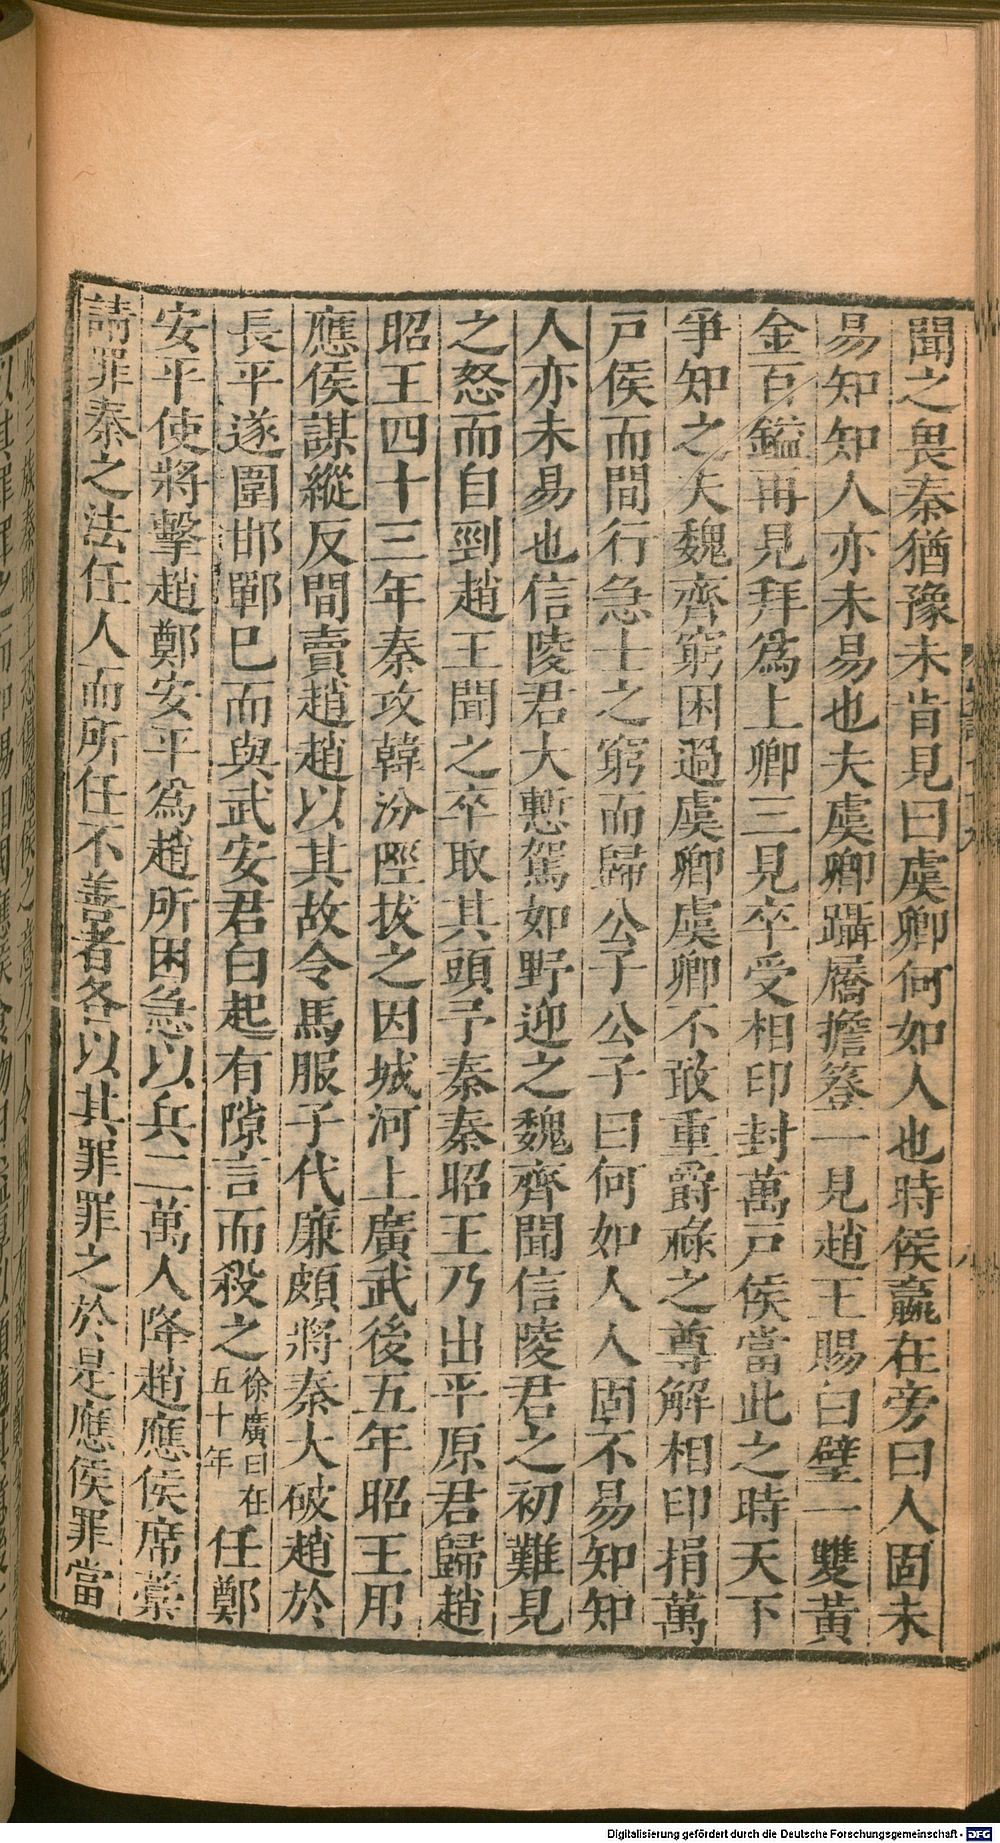 聞之畏秦猶豫未肯見曰虞卿何如人也時侯嬴在旁曰人固未
易知知人亦未易也夫虞卿躡屩擔簦一見趙王賜白璧一雙黃
金百鎰再見拜為上卿三見卒受相印封萬戶侯當此之時天下
爭知之夫魏齊窮困過虞卿虞卿不敢重爵祿之尊解相印捐萬
戶侯而間行急士之窮而歸公子公子曰何如人人固不易知知
人亦未易也信陵君大慙駕如野迎之魏齊聞信陵君之初難見
之怒而自剄趙王聞之卒取其頭予秦秦昭王乃出平原君歸趙
昭王四十三年秦攻韓汾陘拔之因城河上廣武後五年昭王用
應侯謀縱反間賣趙趙以其故令馬服子代廉頗將秦大破趙於
長平遂圍邯鄲巳而與武安君白起有隙言而殺之徐廣曰在五十年任鄭
安平使將擊趙鄭安平為趙所困急以兵二萬人降趙應侯席藁
請罪秦之法任人而所任不善者各以其罪罪之於是應侯罪當
Digitalisierung gefördert durch die Deutsche Forschungsgemeinschaft - DFG